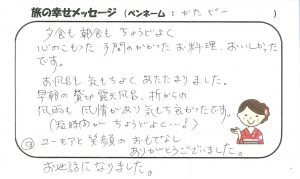 旅の幸せメッセージ (ペンネーム：がたぴー)
夕食も朝食もちょうどよく
心のこもった手間のかかったお料理、おいしかった
です。
お風呂も気もちよくあたたまりました。
早朝の貸切露天風呂、折からの
風雨も風情があり気もち良かったです。
(短時間がちょうどよく…!)
ユーモアと笑顔のおもてなし
ありがとうございました。
お世話になりました。